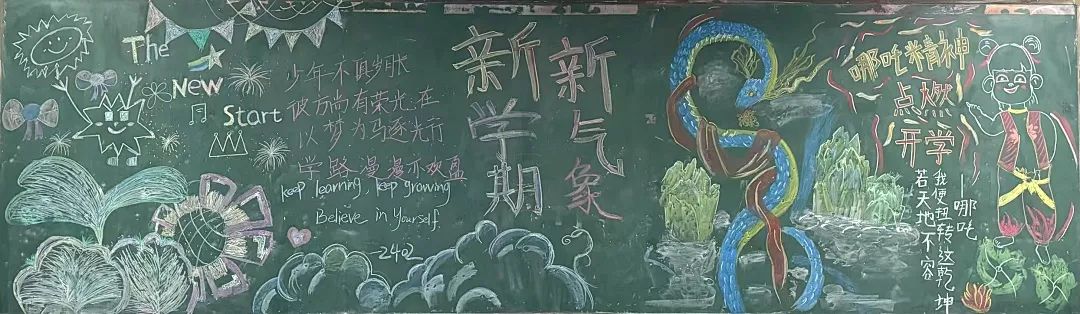 The
New
Start
少年不惧岁长
彼方尚有荣光在
以梦为马逐光行
学路漫漫亦欢盈
keep learning, keep growing
Believe in yourself.
—2402
新学期
新气象
哪吒精神
点燃
开学
若天地不容
我便扭转这乾坤
—哪吒